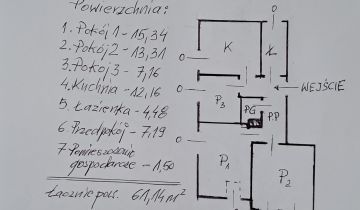 Powierzchnia:
1. Pokój 1 - 15,34
2. Pokój 2 - 13,31
3. Pokój 3 - 7,16
4. Kuchnia - 12,16
5. Łazienka - 4,48
6. Przedpokój - 7,19
7. Pomieszczenie
gospodarcze - 1,50
Łącznie pow. 61,14 m²
O
K
Ł
O
WEJŚCIE
O
P3
PG
P.P
O
P1
P2